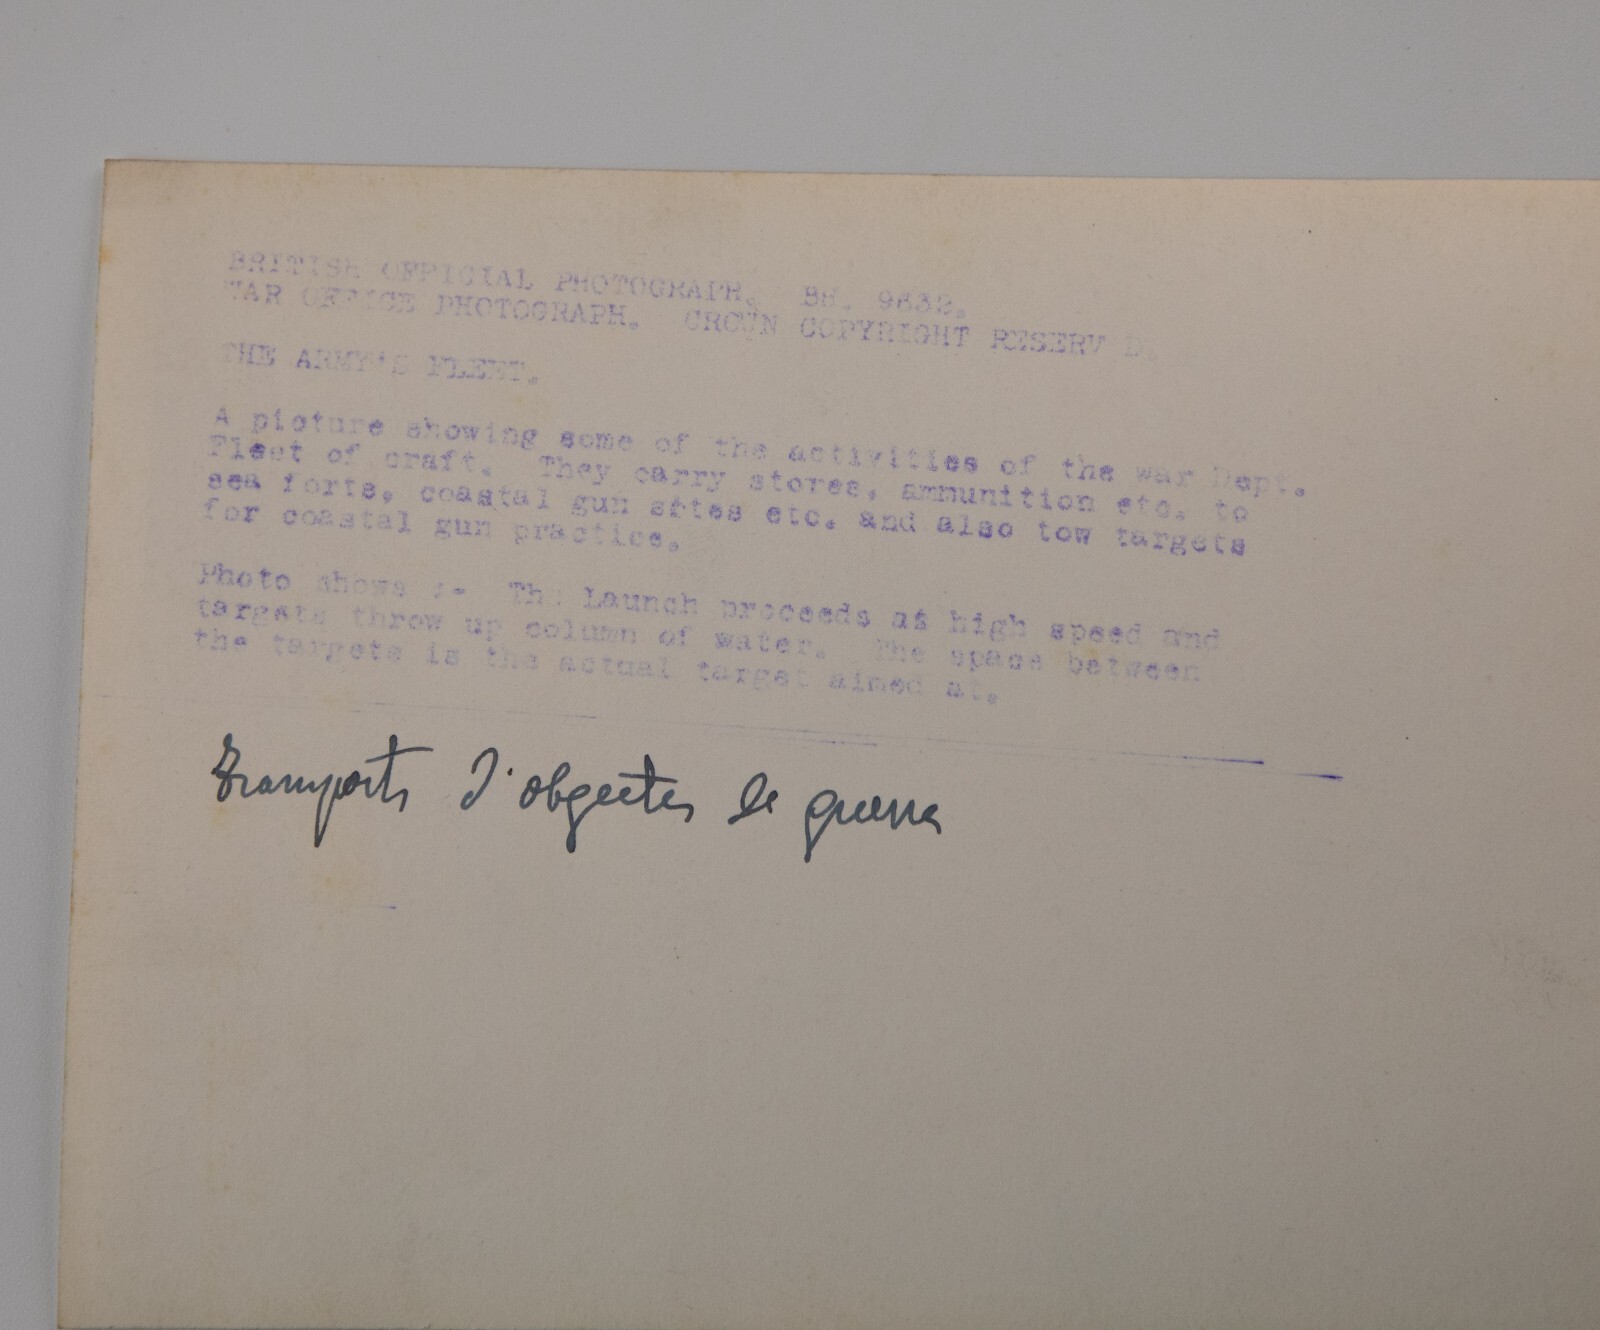 BRITISH OFFICIAL PHOTOGRAPH. BH. 9632.
WAR OFFICE PHOTOGRAPH. CROWN COPYRIGHT RESERV D.
THE ARMY'S FLEET.
A picture showing some of the activities of the War Dept.
Fleet of craft. They carry stores, ammunition etc. to
sea forts, coastal gun sites etc. and also tow targets
for coastal gun practice.
Photo shows :- The Launch proceeds at high speed and
targets throw up column of water. The space between
the targets is the actual target aimed at.
Transports d'obgectes de guerra